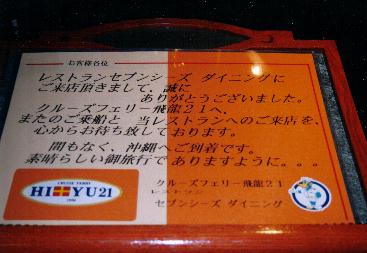 お客様各位
レストランセブンシーズ ダイニングに
ご来店頂きまして、誠に
ありがとうございました。
クルーズフェリー飛龍21へ、
またのご乗船と 当レストランへのご来店を、
心からお待ち致しております。
間もなく、沖縄へご到着です。
素晴らしい御旅行でありますように。。。
CRUISE FERRY
HI YU 21
クルーズフェリー飛龍21
レストラン
セブンシーズ ダイニング